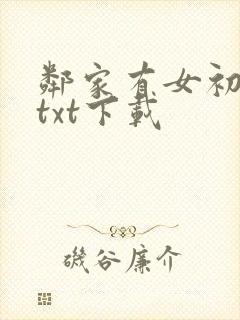 鄰家有女初
txt下載
磯谷廉介